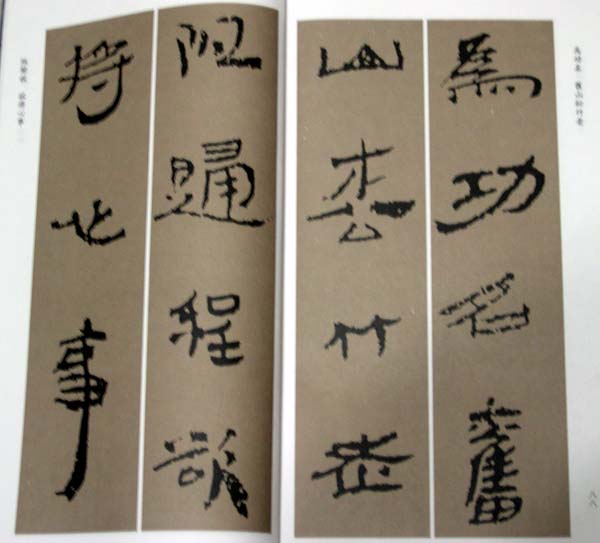 為功名 舊山松竹老
八八
為功名舊
山松竹老
阻歸程欲
將心事
阻歸程 欲將心事